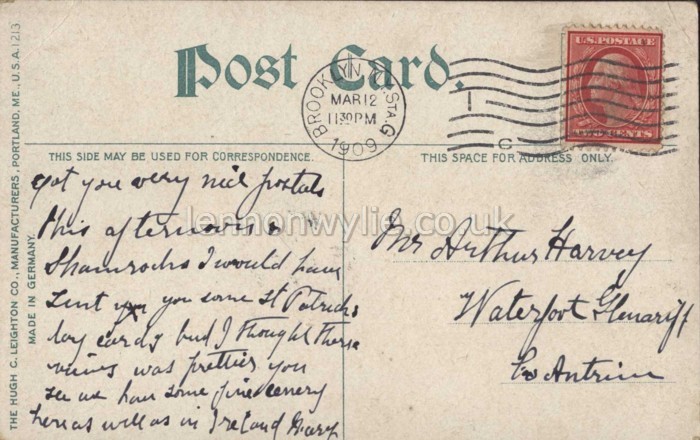 Post Card.
BROOKLYN N.Y. STA. G
MAR 12
11 30 PM
1909
1
C
U.S. POSTAGE
TWO CENTS
THIS SIDE MAY BE USED FOR CORRESPONDENCE.
THIS SPACE FOR ADDRESS ONLY.
THE HUGH C. LEIGHTON CO., MANUFACTURERS, PORTLAND, ME., U.S.A. 1213
MADE IN GERMANY.
got you very nice postals
this afternoon &
Shamrocks I would have
sent you some St Patricks
day cards but I thought these
views was prettier you
see we have some fine cenery
here as well as in Ireland Mary
Mr Arthur Harvey
Waterfoot Glenariff
Co Antrim
lennonwylie.co.uk